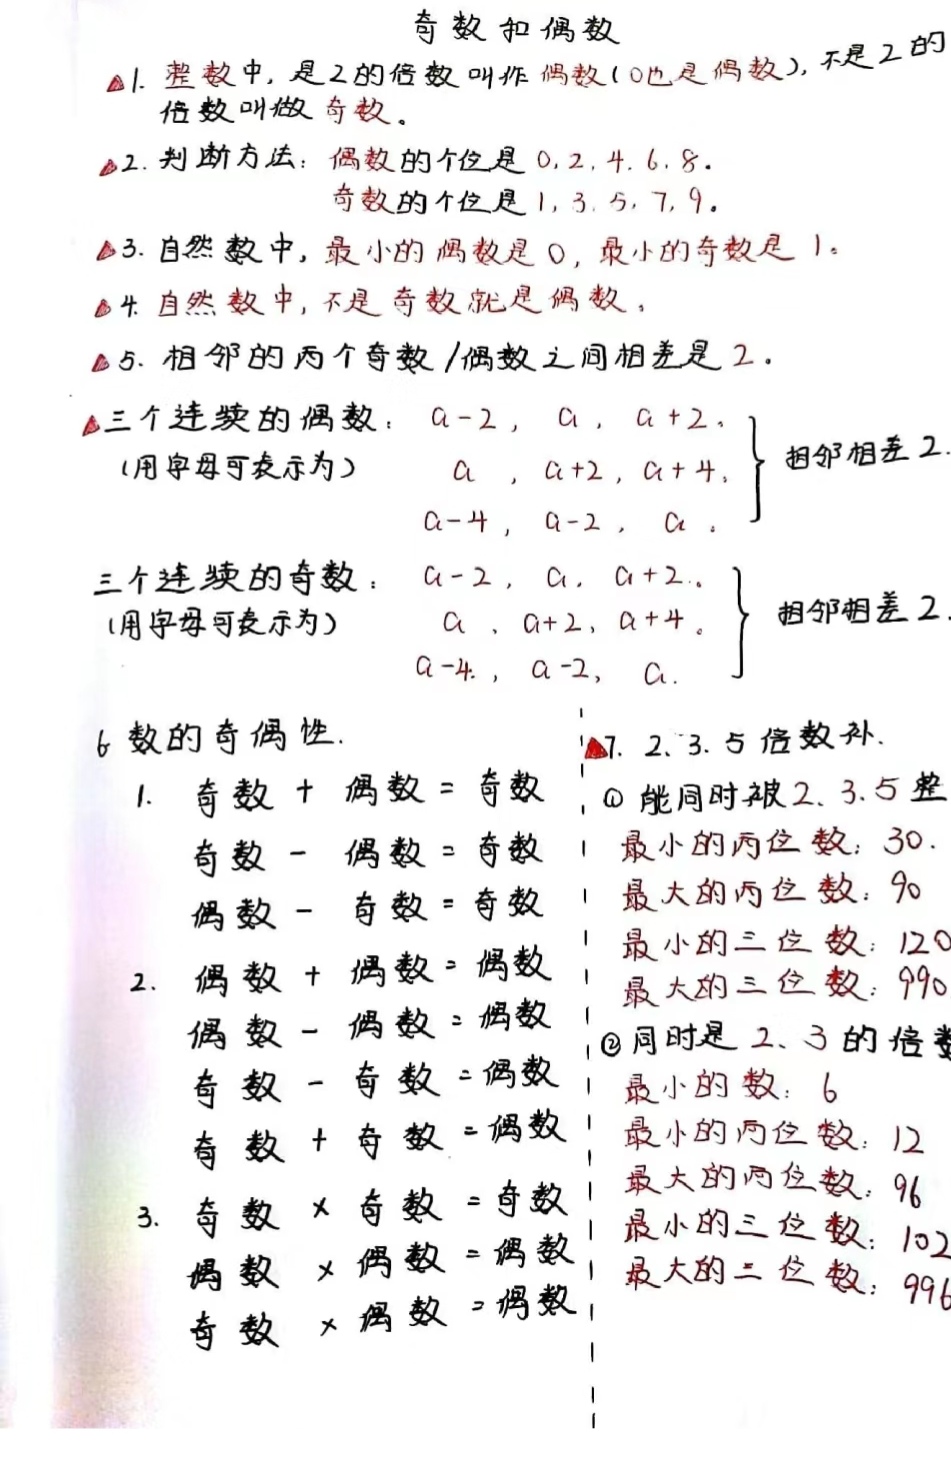 奇数和偶数
1. 整数中，是2的倍数叫作偶数（0也是偶数），不是2的
倍数叫做奇数。
2. 判断方法：偶数的个位是0,2,4,6,8.
奇数的个位是1,3,5,7,9.
3. 自然数中，最小的偶数是0，最小的奇数是1。
4. 自然数中，不是奇数就是偶数。
5. 相邻的两个奇数/偶数之间相差是2.
三个连续的偶数： a-2, a, a+2.
（用字母可表示为） a, a+2, a+4.
a-4, a-2, a.
相邻相差2.
三个连续的奇数： a-2, a, a+2.
（用字母可表示为） a、a+2、a+4。
a-4, a-2, a.
相邻相差2.
6 数的奇偶性.
1. 奇数 + 偶数 = 奇数
奇数 - 偶数 = 奇数
偶数 - 奇数 = 奇数
2. 偶数 + 偶数 = 偶数
偶数 - 偶数 = 偶数
奇数 - 奇数 = 偶数
奇数 + 奇数 = 偶数
3. 奇数 × 奇数 = 奇数
偶数 × 偶数 = 偶数
奇数 × 偶数 = 偶数
7. 2、3.5倍数补.
① 能同时被2、3.5整
最小的两位数：30.
最大的两位数：90
最小的三位数：120
最大的三位数：990
②同时是2、3的倍数
最小的数：6
最小的两位数：12
最大的两位数：96
最小的三位数：102
最大的三位数：996